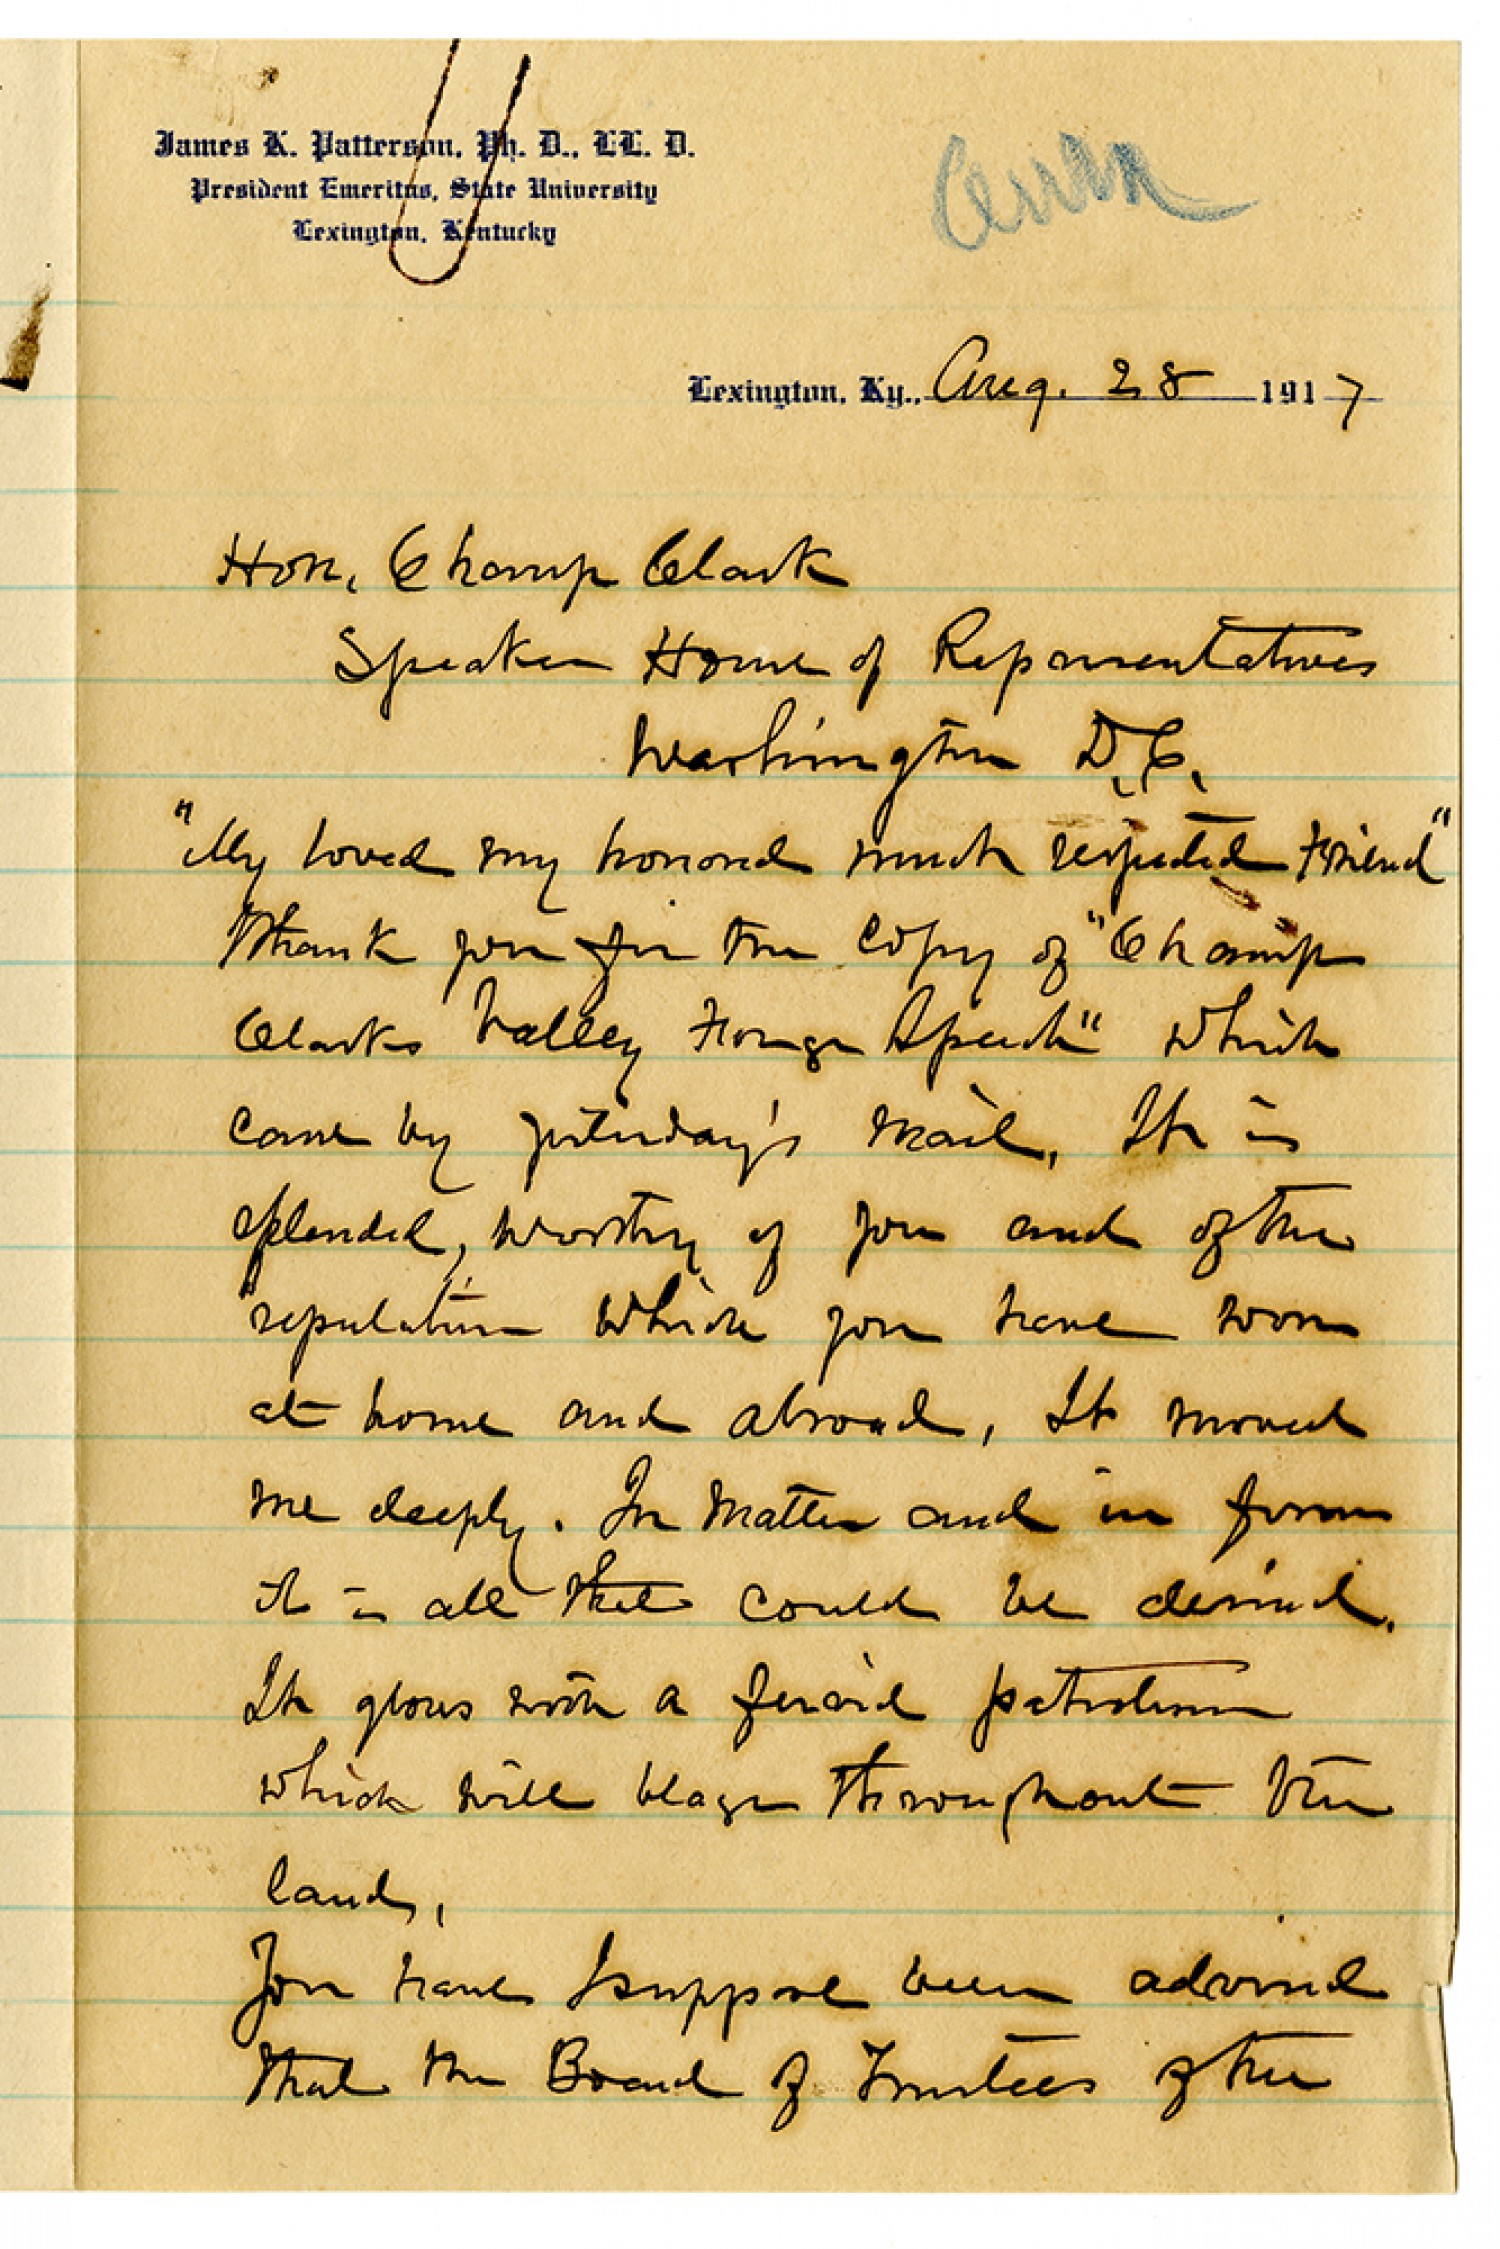 James K. Patterson, Ph. D., LL. D.
President Emeritus, State University
Lexington, Kentucky
Lexington, Ky., Aug. 28 1917
Hon. Champ Clark
Speaker House of Representatives
Washington D.C.
"My loved my honored much respected Friend"
Thank you for the copy of "Champ
Clarks Valley Forge Speech" which
came by yesterday's mail, It is
splendid, worthy of you and of the
reputation which you have won
at home and abroad, It moved
me deeply. In matter and in form
it is all that could be desired.
It glows with a fervid patriotism
which will blaze throughout the
land,
You have I suppose been advised
that the Board of Trustees of the